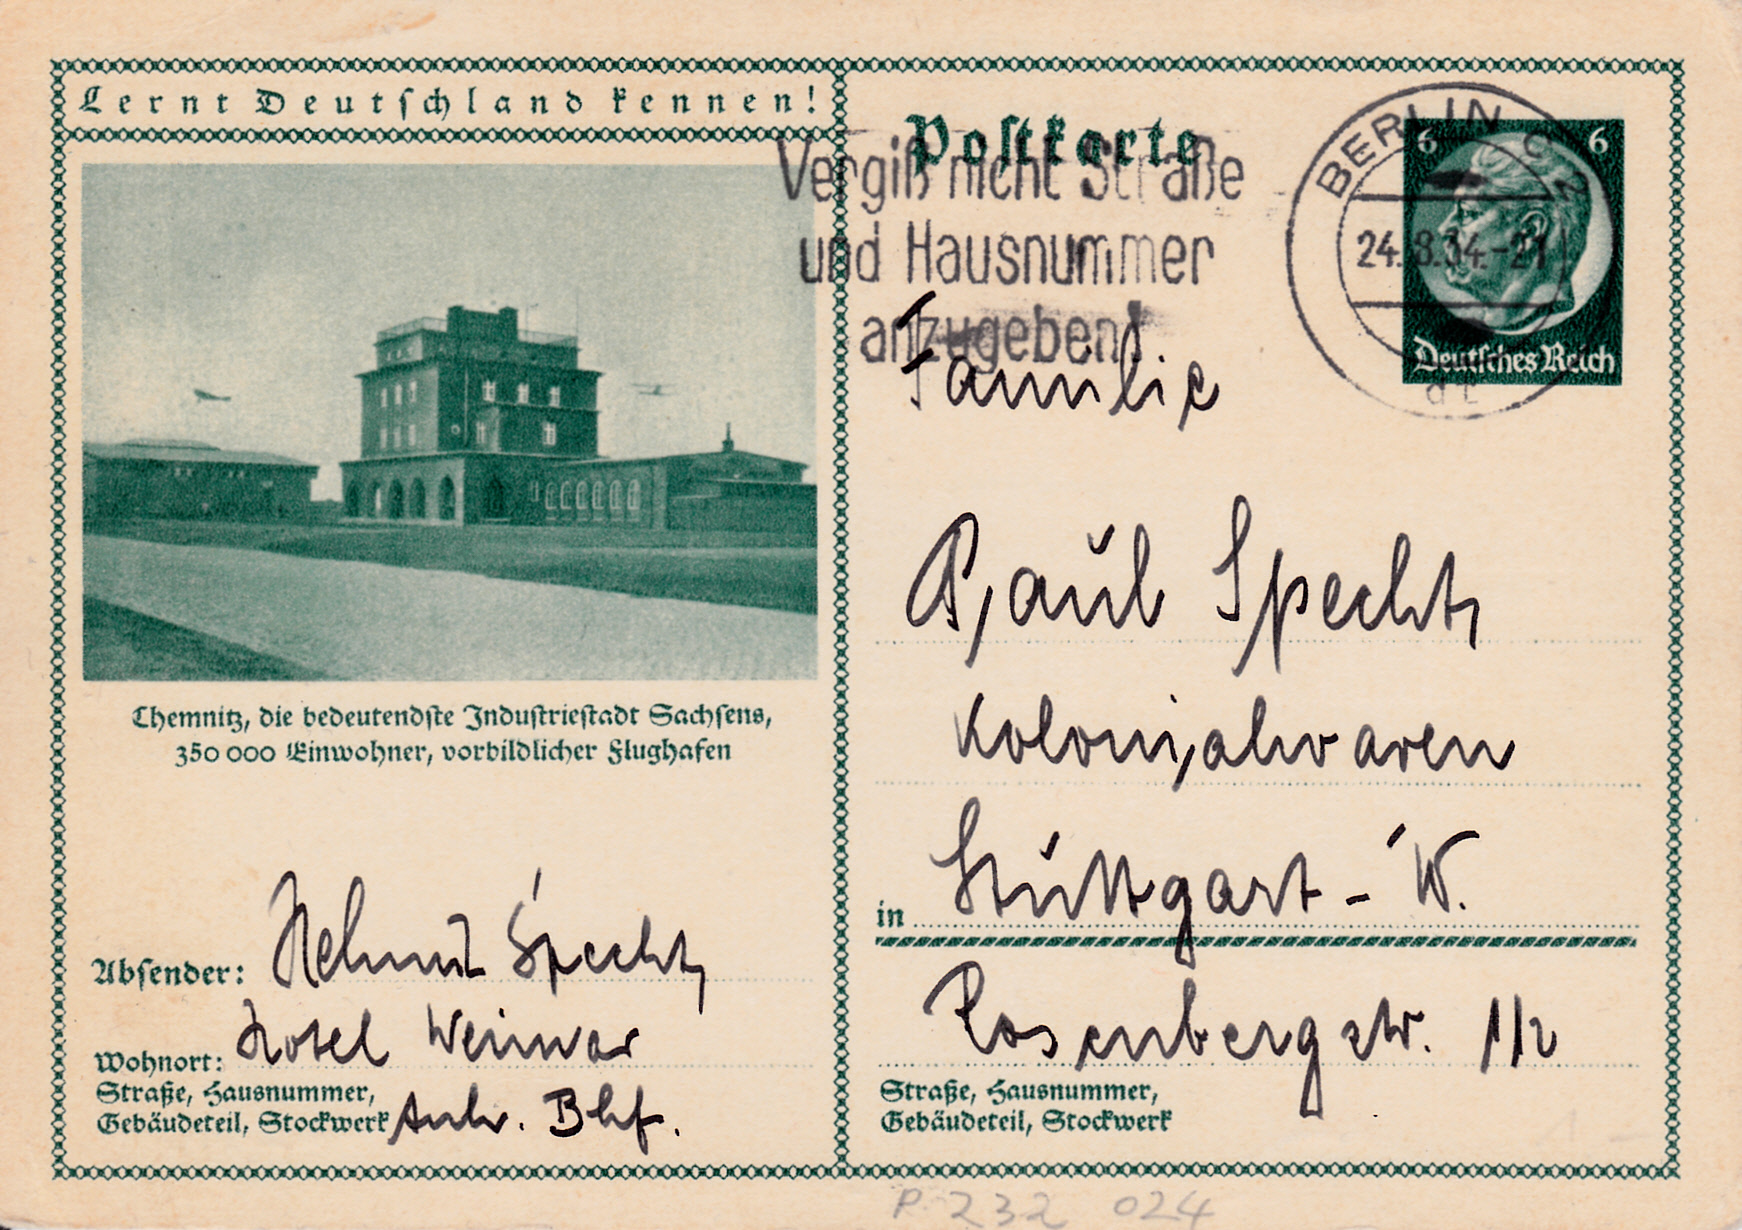 Lernt Deutschland kennen!
Chemnitz, die bedeutendste Industriestadt Sachsens,
350 000 Einwohner, vorbildlicher Flughafen
Absender: Helmut Specht,
Wohnort: Hotel Weimar
Straße, Hausnummer,
Gebäudeteil, Stockwerk Anh. Bhf.
Postkarte
Vergiß nicht Straße
und Hausnummer
anzugeben!
BERLIN C 2
24.8.34.-21
6 6
Deutsches Reich
Familie
Paul Specht,
Kolonialwaren
in Stuttgart-W.
Rosenbergstr. 112
Straße, Hausnummer,
Gebäudeteil, Stockwerk
P 232 024